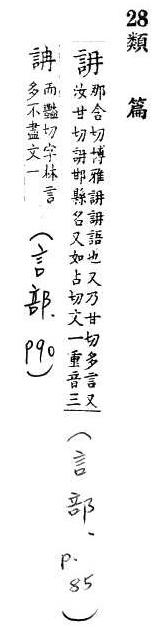 28類篇
詽 那含切博雅詽詽語也又乃甘切多言又
汝甘切詽邯縣名又如占切文一重音三
(言部、p.85)
䛁 而豔切字林言
多不盡文一
(言部.P90)